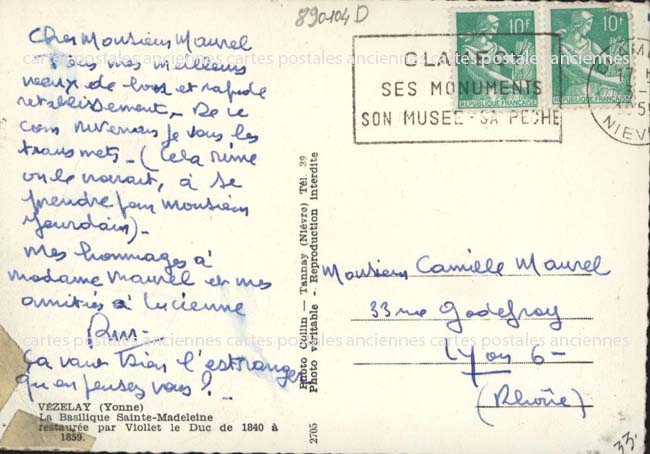 890104 D
Cher Monsieur Maurel
meilleurs
vœux de bons et rapide
rétablissement - De ce
coin nivernais je vous les
transmets - (Cela rime
on le voudrait, à se
prendre pour Monsieur
Jourdain) -
Mes hommages à
madame Maurel et mes
amitiés à Lucienne
Ça vaut bien l'estranger
qu'en pensez vous ? -
VÉZELAY (Yonne)
La Basilique Sainte-Madeleine
restaurée par Viollet le Duc de 1840 à
1859.
Photo Collin — Tannay (Nièvre) Tél. 39
Photo véritable - Reproduction interdite
2705
POSTES
10F
REPUBLIQUE FRANÇAISE
10F
REPUBLIQUE FRANÇAISE
CLA
SES MONUMENTS
SON MUSEE - SA PECHE
NIEV
Monsieur Camille Maurel
33 rue Godefroy
Lyon 6 -
(Rhône)
33.
cartes postales anciennes cartes postales anciennes cartes postales anciennes
cartes postales anciennes cartes postales anciennes cartes postales anciennes